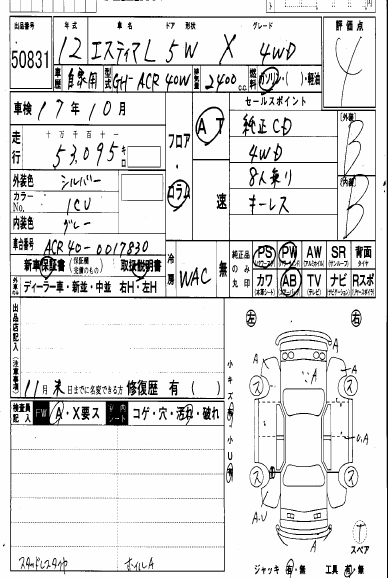 出品番号 年式 車名 ドア 形状 グレード 評価点
50831 12 エスティマL 5W X 4WD 4
車歴 自家用 型式 GH-ACR40W 排気量 2400 c.c. 燃料 ガソリン・( )・軽油
車検 17年10月 AT セールスポイント
走行 十万 千 百 十 一
53,095 キロ
フロア・コラム 速
純正CD
4WD
8人乗り
キーレス
[外装] B
[内装] B
外装色 シルバー
カラーNo. 1CU
内装色 グレー
車台番号 ACR40-0017830
新車保証書 (保証継続可能なもの) 取扱説明書
ディーラー車・新並・中並 右H・左H
冷房 WAC 無
純正品のみ丸印
PS PW AW SR 背面
(パワステ) (パワーウィンド) (アルミホイル) (サンルーフ) タイヤ
カワ AB TV ナビ Rスポ
(本革シート) (エアーバッグ) (テレビ) (ナビゲーション) (リヤスポイラ)
出品店記入 (注意事項)
11月末日までに名変できる方 修復歴 有 ( )
検査員記入 FW A・X要ス 内 シート コゲ・穴・汚れ・破れ
左 右
小キズ 有 小U 有
A
A A
A
ス ス
U,A
ス ス
A
A・U
A
スタッドレスタイヤ ホイルA
T
スペア
ジャッキ 有・無 工具 有・無